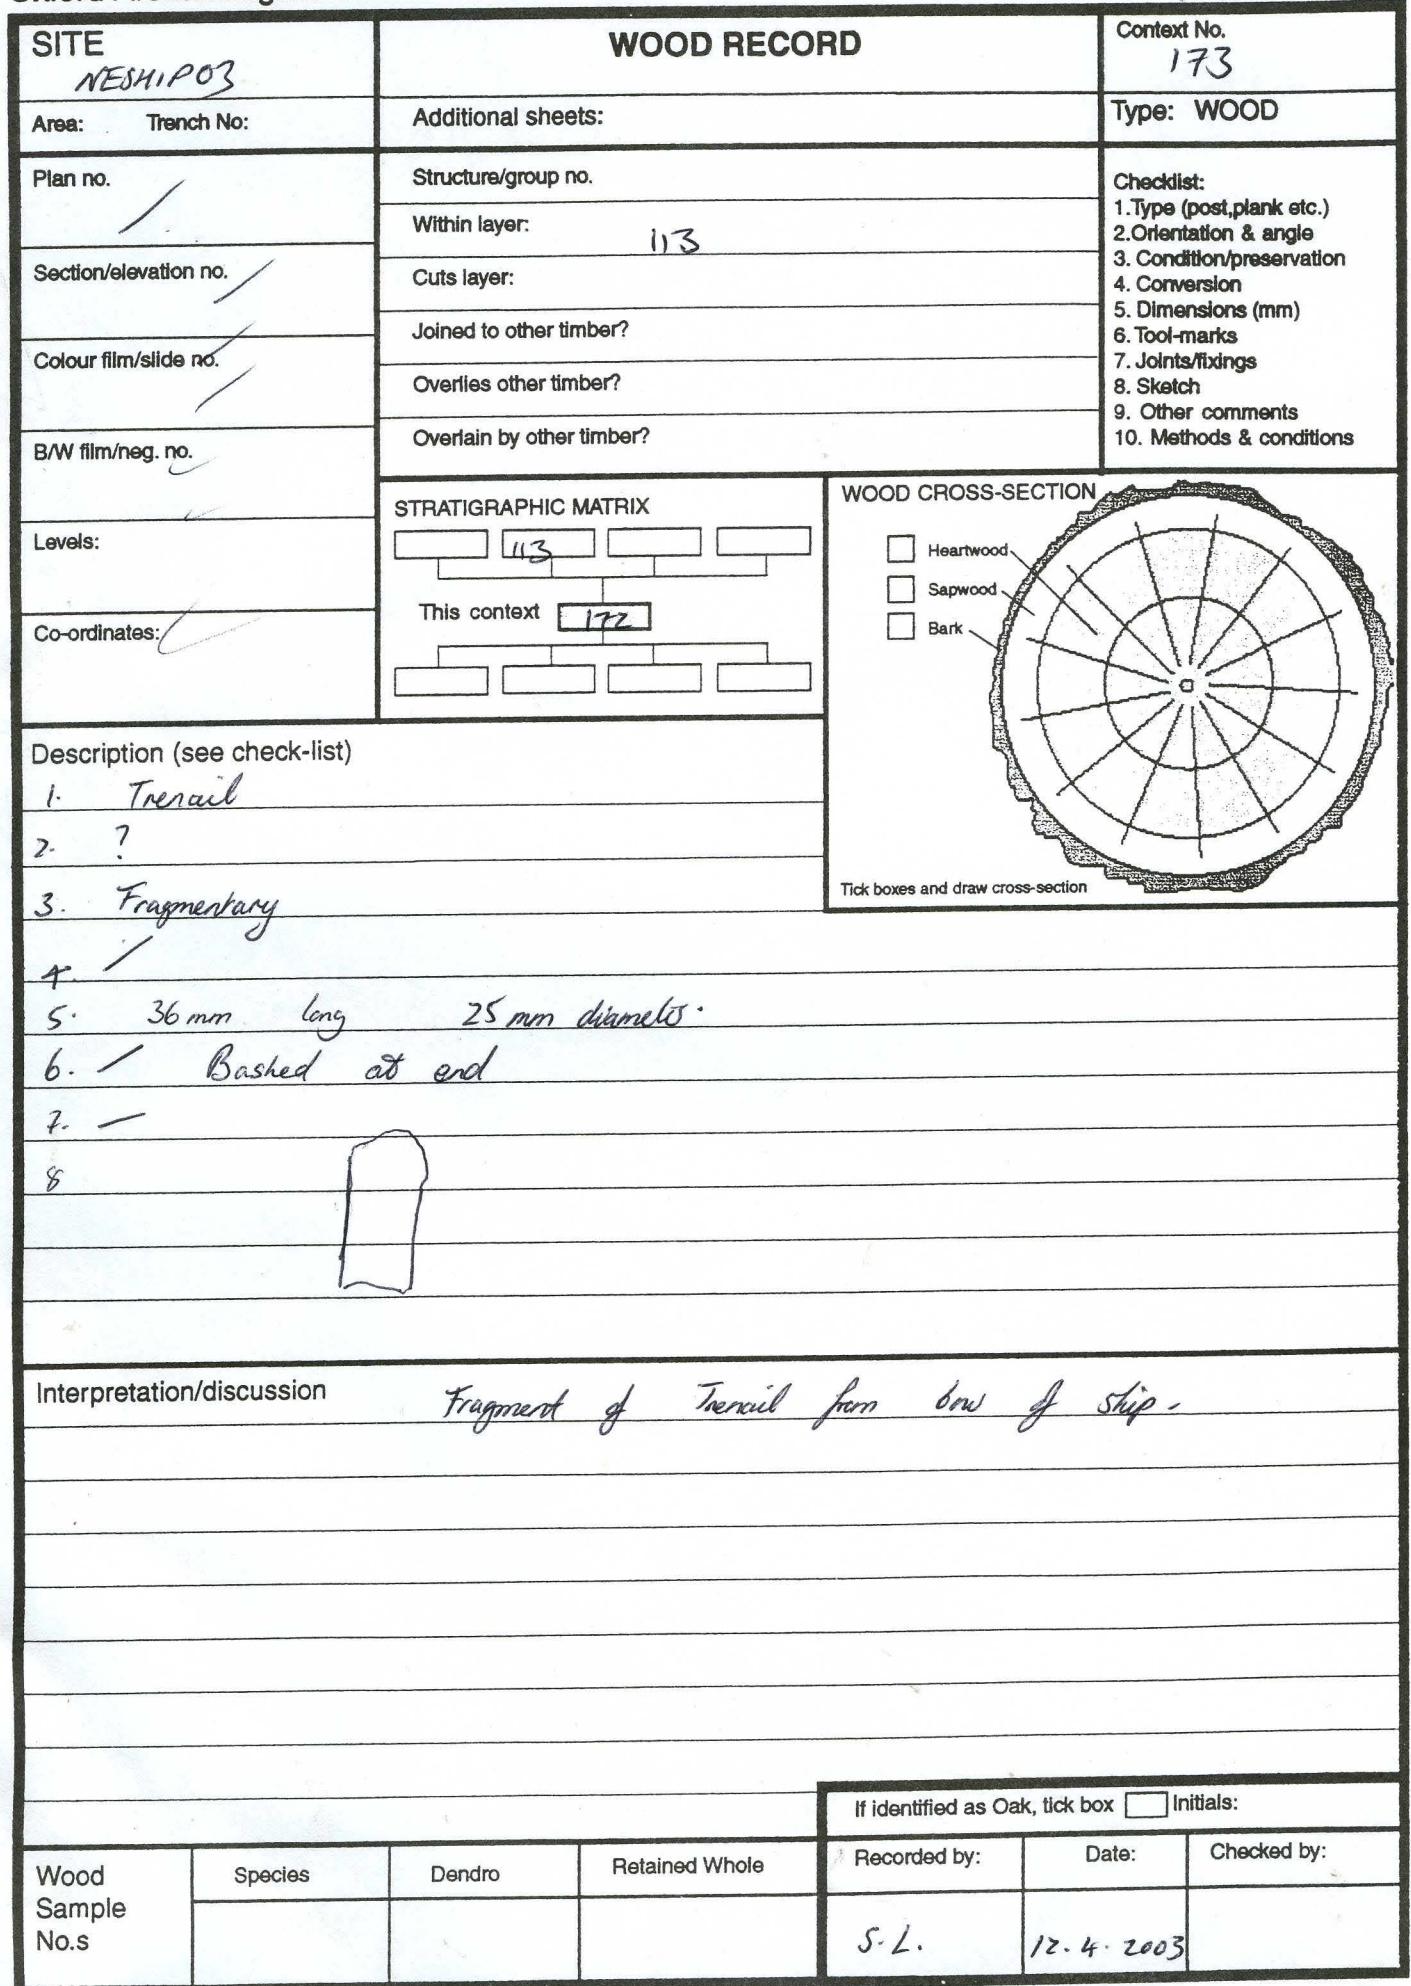 SITE
NESHIP03
WOOD RECORD
Context No.
173
Area: Trench No:
Additional sheets:
Type: WOOD
Plan no.
Section/elevation no.
Colour film/slide no.
B/W film/neg. no.
Levels:
Co-ordinates:
Structure/group no.
Within layer: 113
Cuts layer:
Joined to other timber?
Overlies other timber?
Overlain by other timber?
Checklist:
1.Type (post,plank etc.)
2.Orientation & angle
3. Condition/preservation
4. Conversion
5. Dimensions (mm)
6. Tool-marks
7. Joints/fixings
8. Sketch
9. Other comments
10. Methods & conditions
STRATIGRAPHIC MATRIX
113
This context 172
WOOD CROSS-SECTION
Heartwood
Sapwood
Bark
Tick boxes and draw cross-section
Description (see check-list)
1. Trenail
2. ?
3. Fragmentary
4. /
5. 36 mm long 25 mm diameter.
6. / Bashed at end
7. —
8
Interpretation/discussion Fragment of Trenail from bow of ship.
If identified as Oak, tick box Initials:
Wood Sample No.s
Species
Dendro
Retained Whole
Recorded by:
S.L.
Date:
12.4.2003
Checked by: